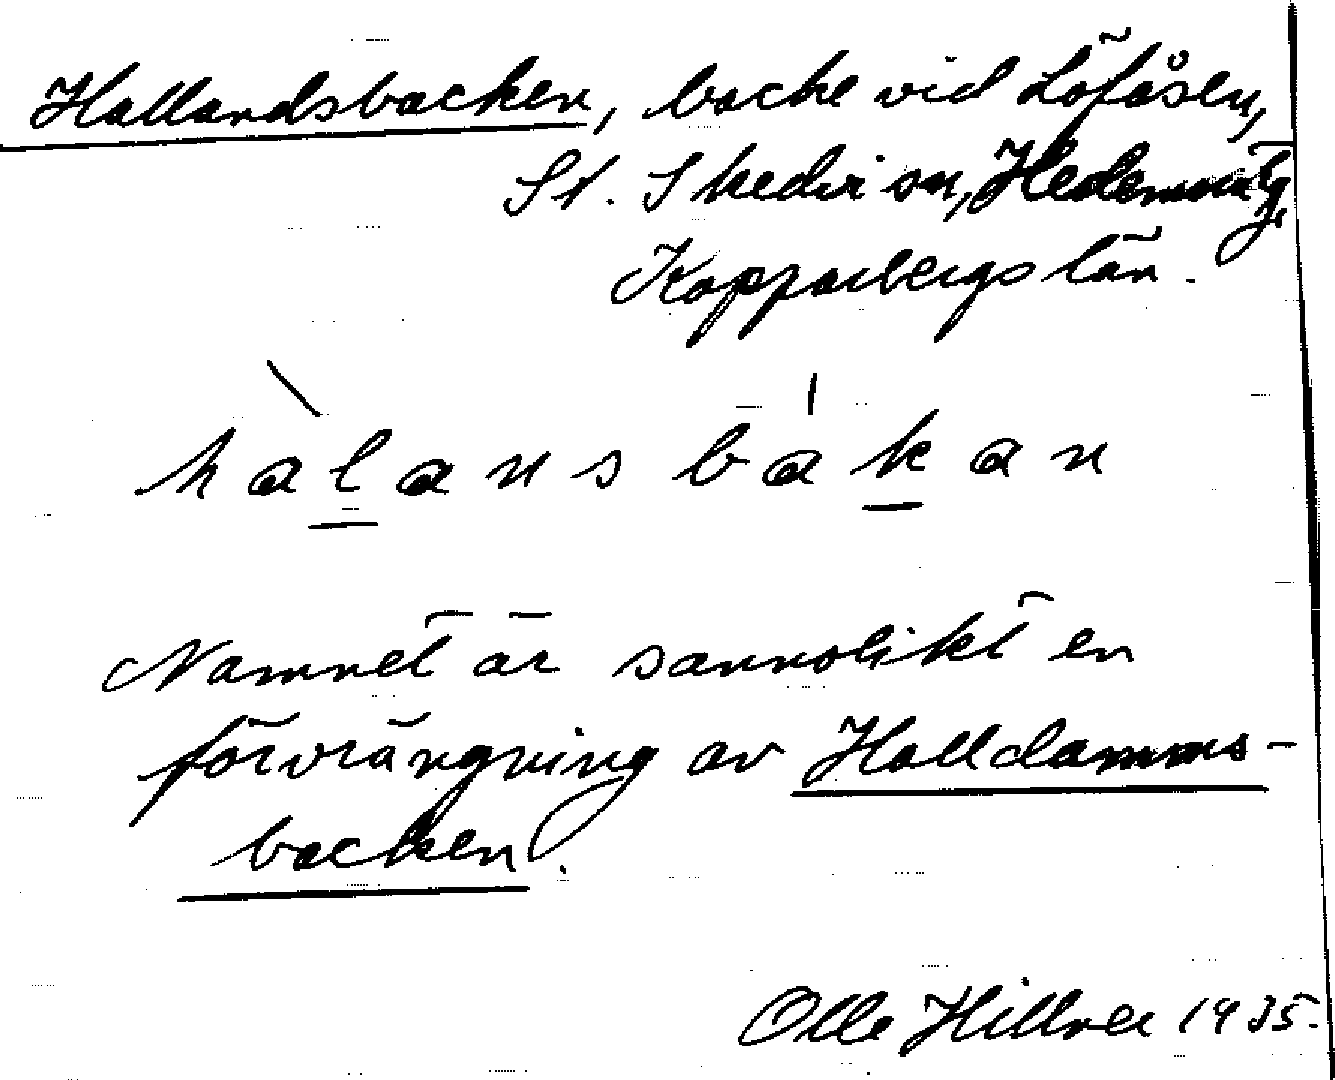 Hallandsbacken, backe vid Löfåsen,
St. Skedvi sn, Hedemora tg,
Kopparbergs län.
halansbakan
Namnet är sannolikt en
förvrängning av Halldamms-
backen.
Olle Hillner 1935.